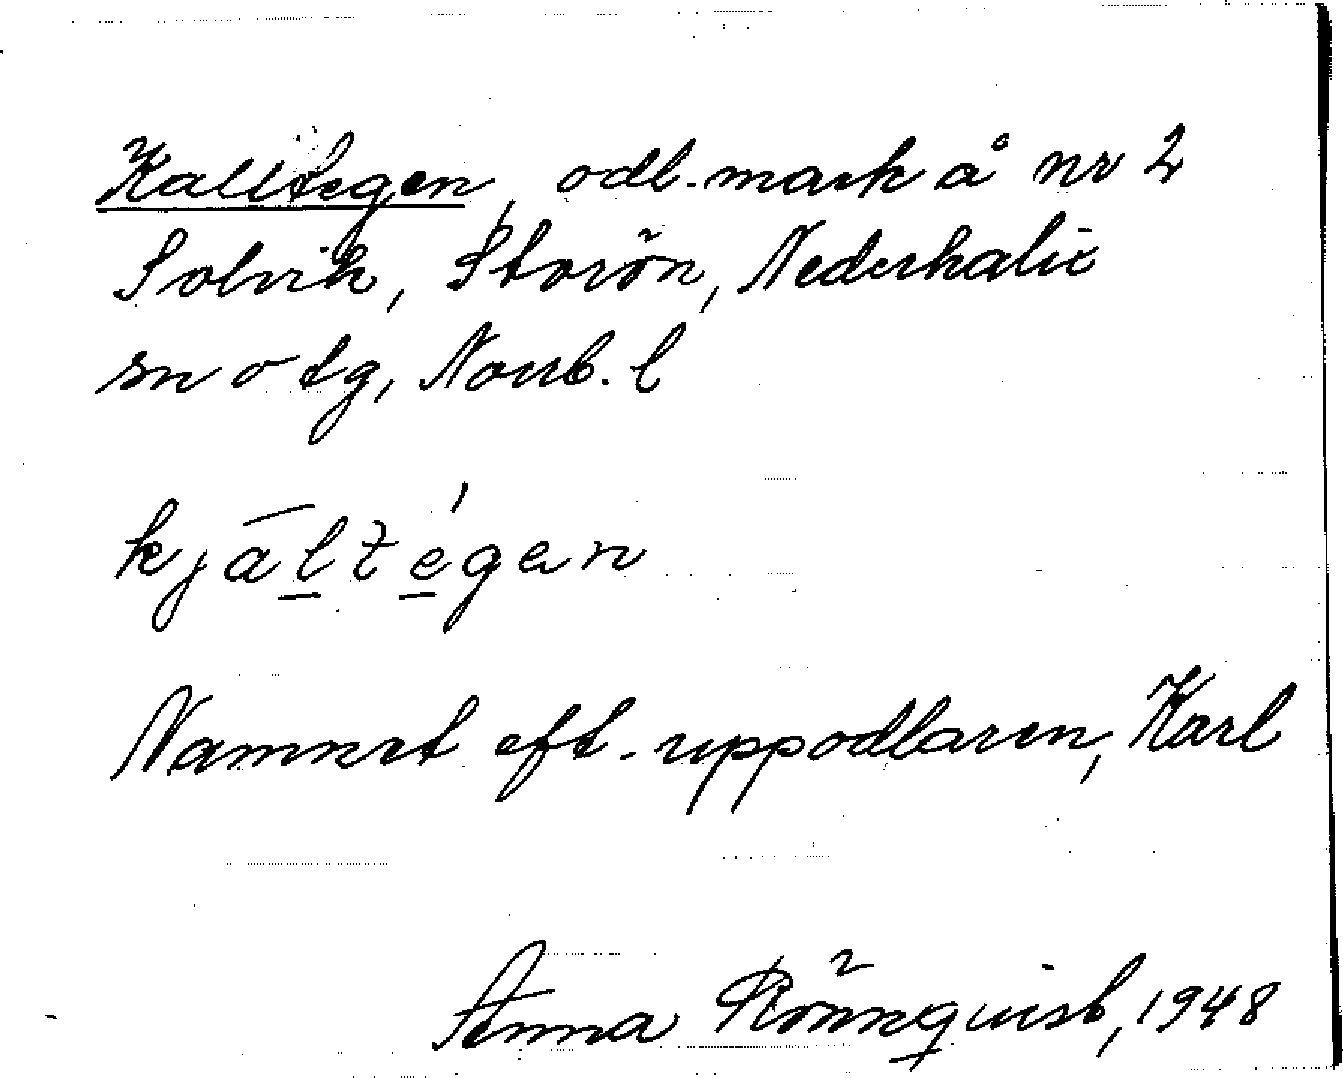 Kalltegen, odl.mark å nr 2
Solvik, Storön, Nederkalix
sn o tg, Norrb. l
kjāl̲té̲gen
Namnet eft. uppodlaren, Karl
Anna Rönnqvist, 1948